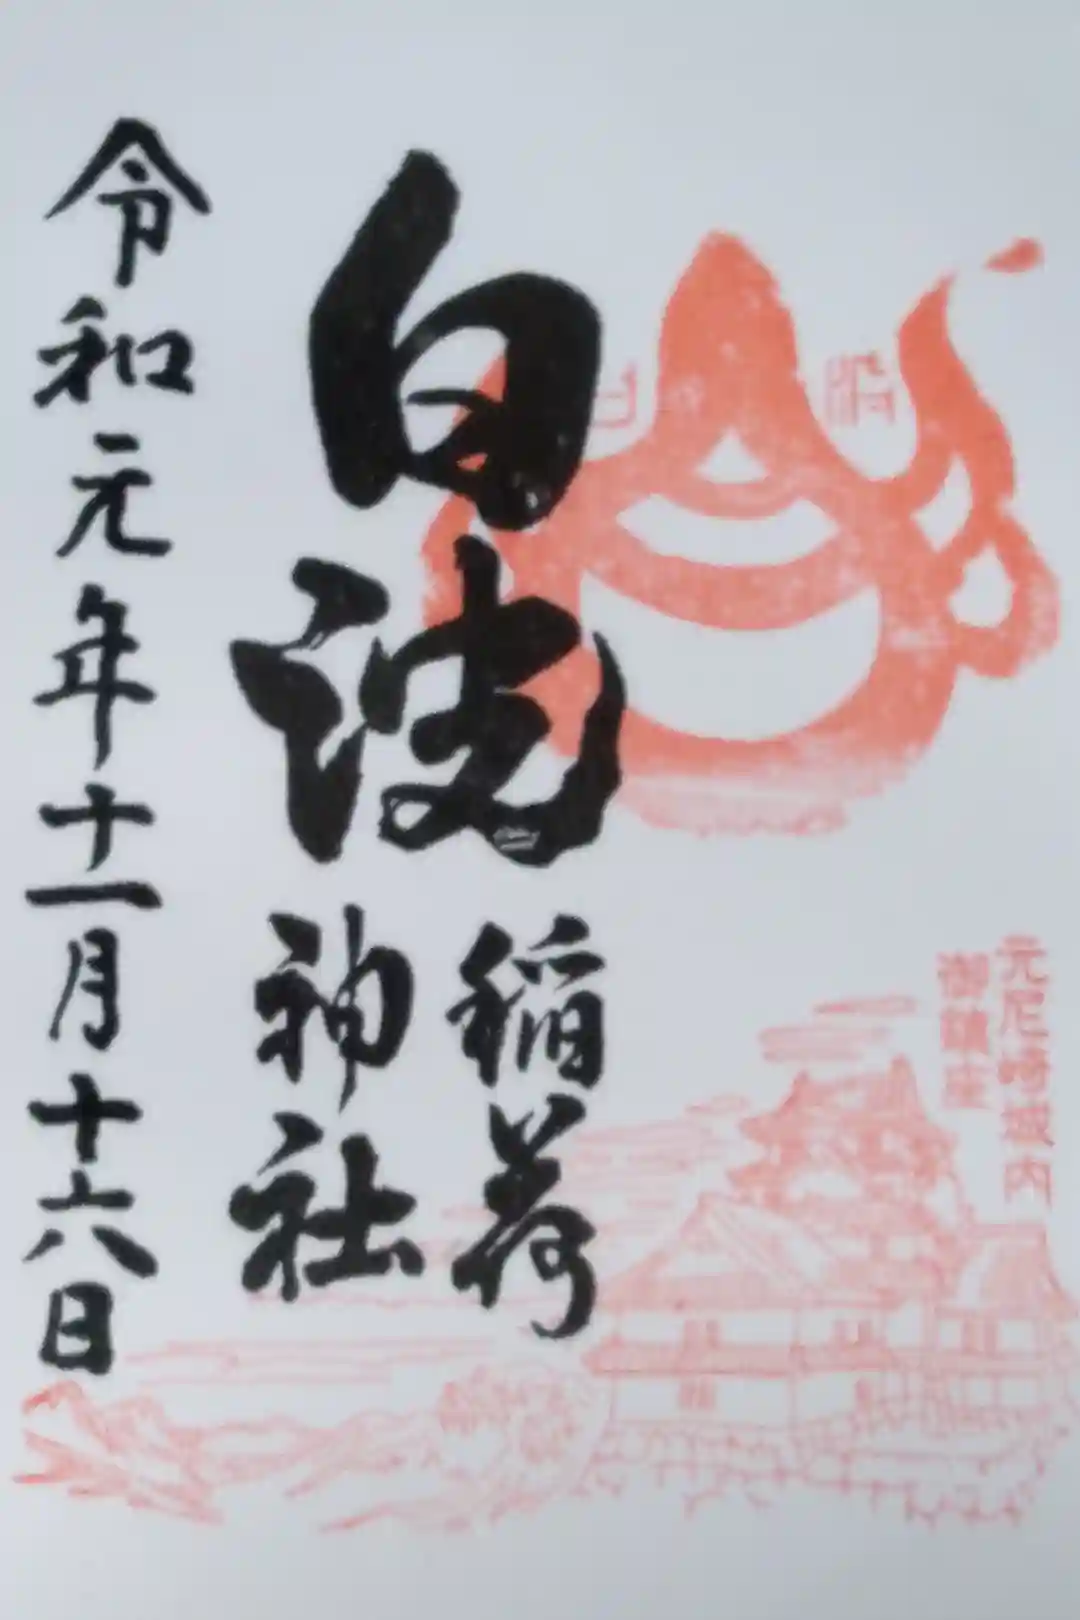 元尼崎城内
御鎮座
白波
稲荷
神社
令和元年十一月十六日